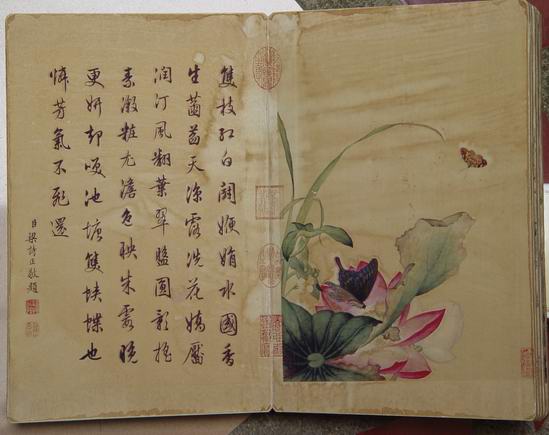 雙枝紅白鬪嬋娟水國香
生菡萏天涼露洗花嬌靨
潤汀風翻葉翠盤圓影搖
素瀲粧尤澹色映朱霞晚
更妍却愛池塘雙蛺蝶也
憐芳氣不飛還
臣梁詩正敬題